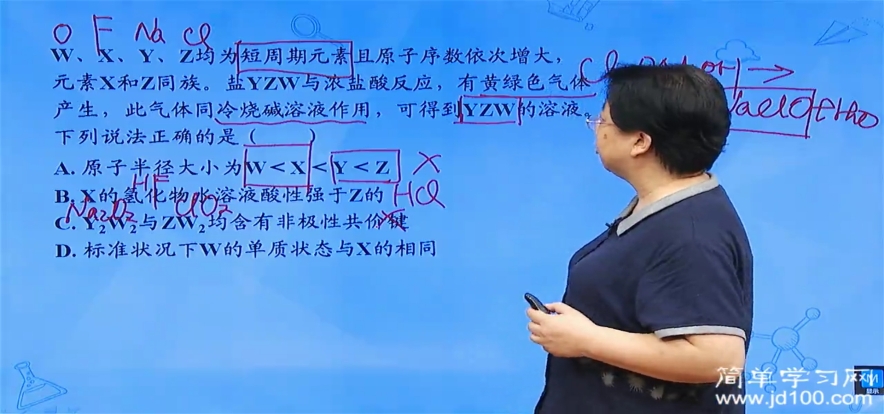 O F Na Cl
W、X、Y、Z均为短周期元素且原子序数依次增大，
元素X和Z同族。盐YZW与浓盐酸反应，有黄绿色气体
产生，此气体同冷烧碱溶液作用，可得到YZW的溶液。
下列说法正确的是（ ）
A. 原子半径大小为W＜X＜Y＜Z ×
B. X的氢化物水溶液酸性强于Z的
HF HCl
Na₂O₂ ClO₂
C. Y₂W₂与ZW₂均含有非极性共价键
D. 标准状况下W的单质状态与X的相同
简单学习网
www.jd100.com